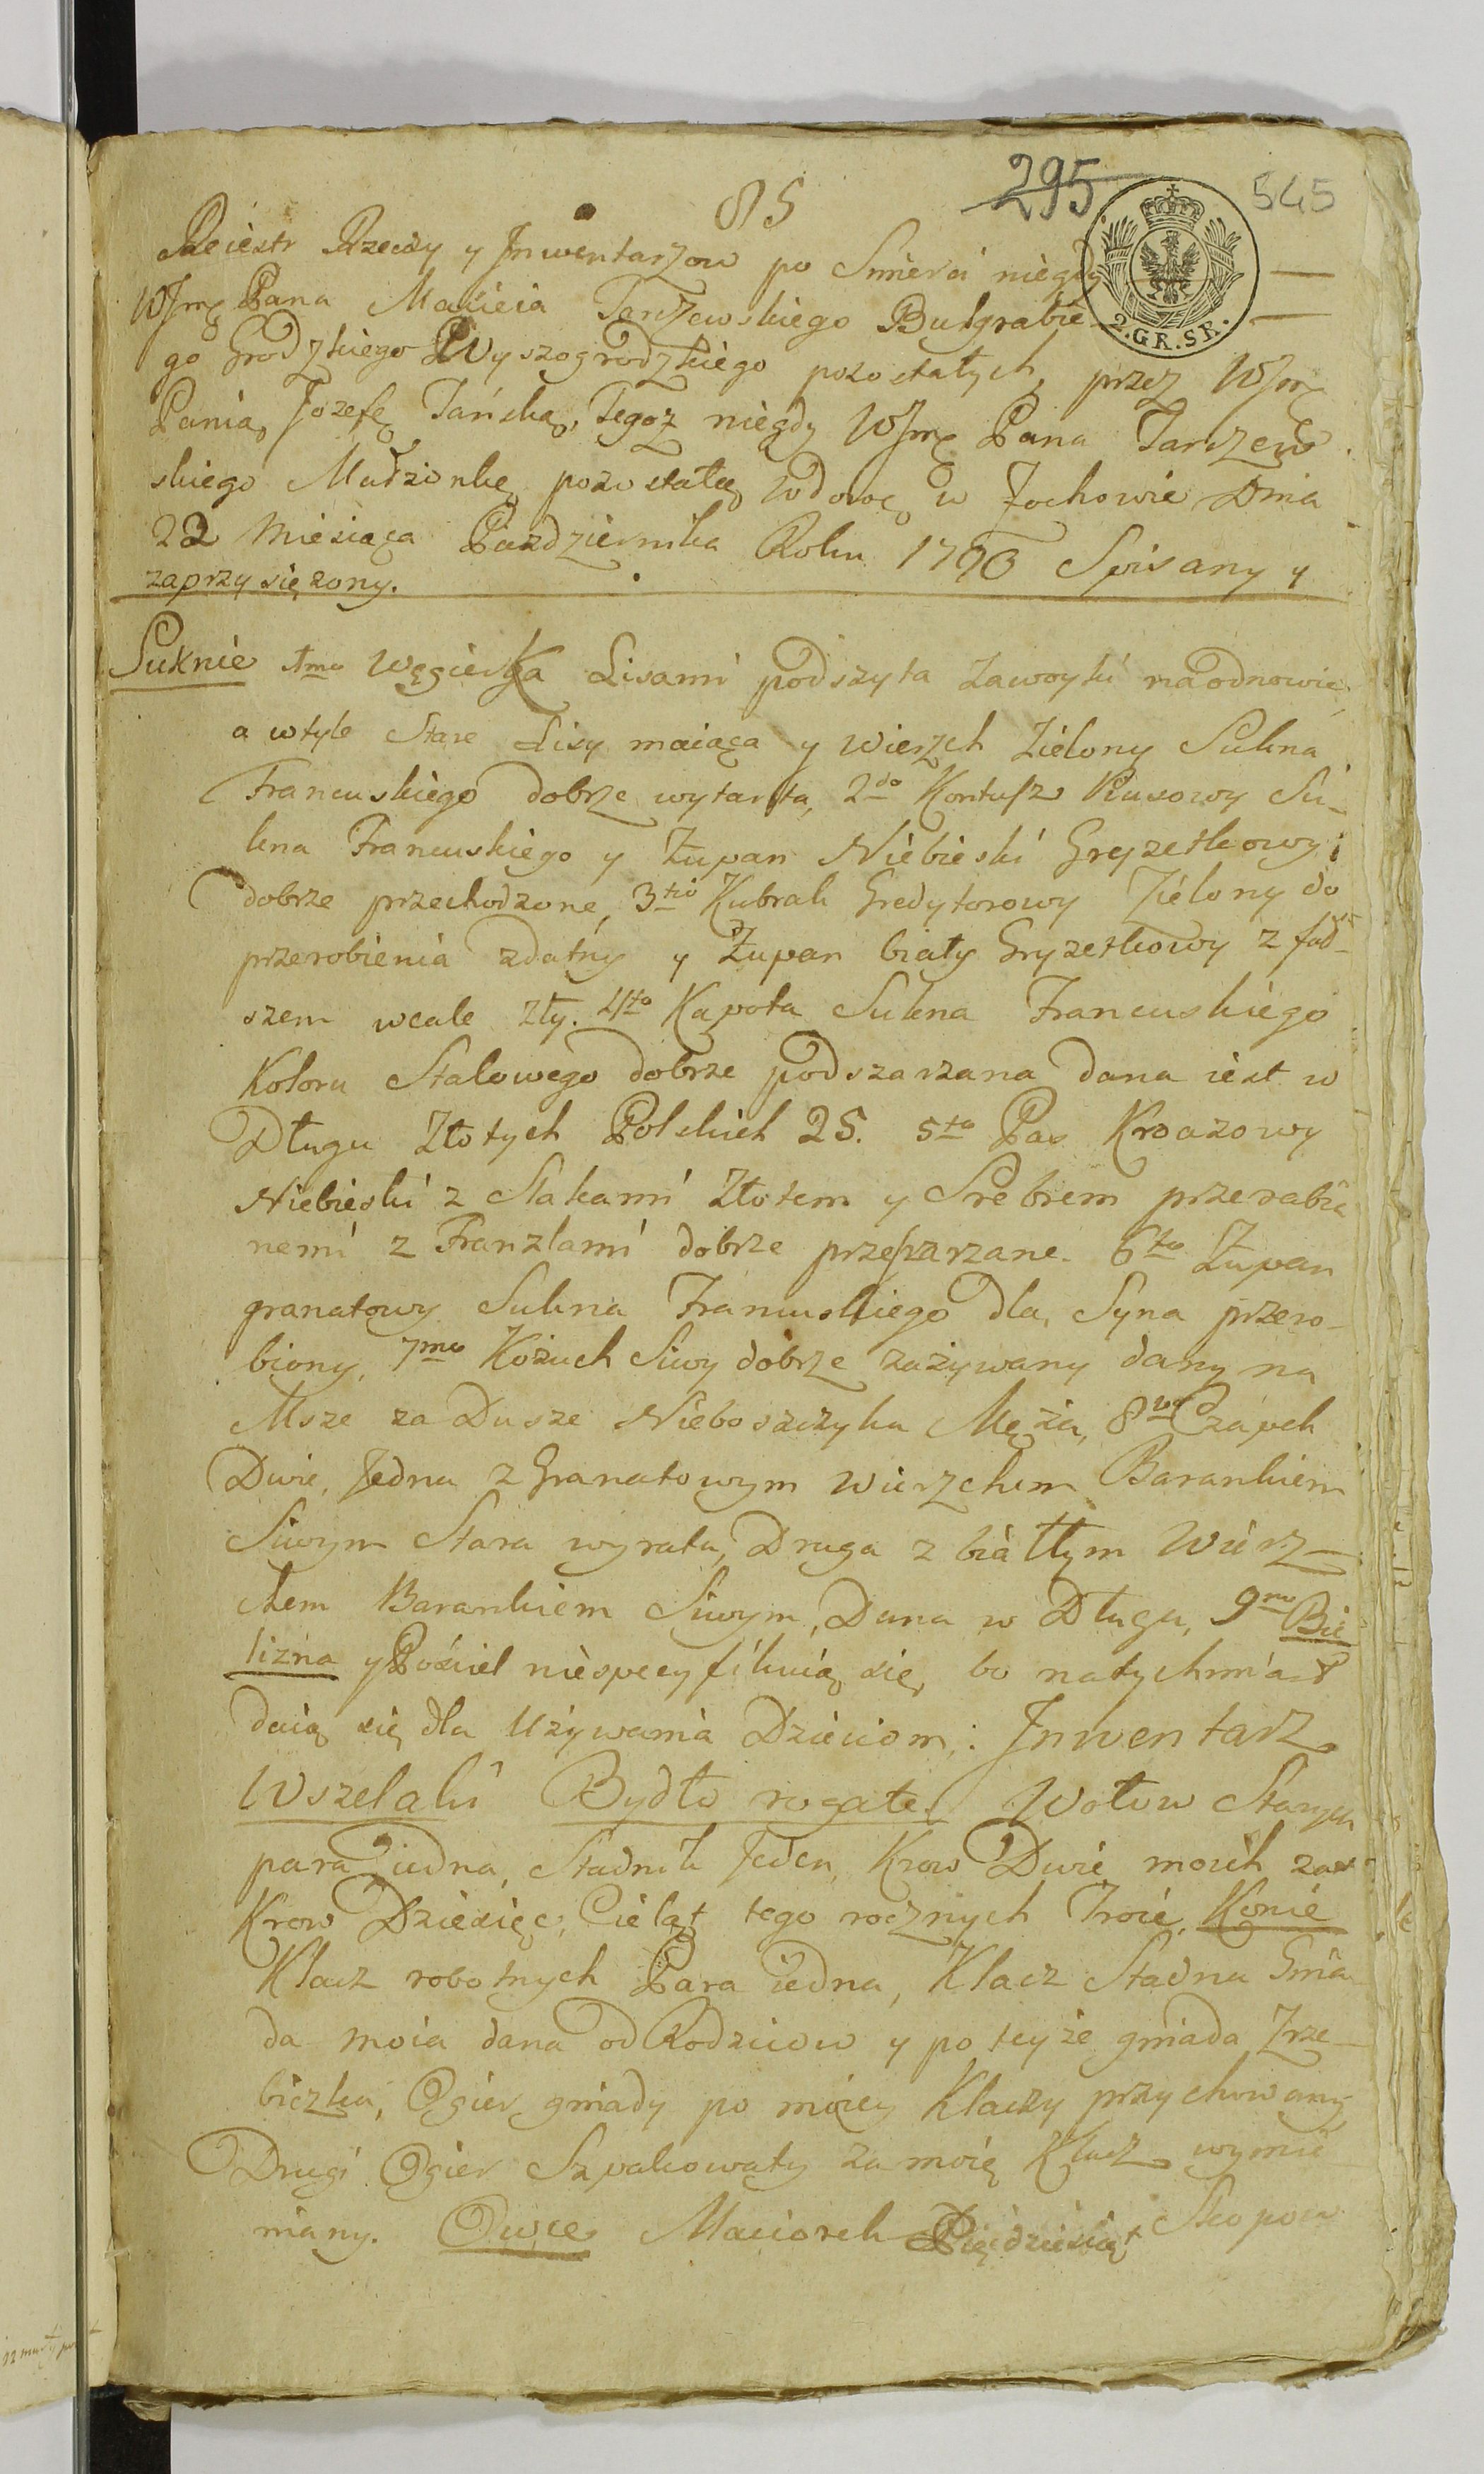 295
545
85
2.GR.SR.
Reiestr Rzeczy y Jnwentarzow po Smierci niegdy
WJmę Pana Macieia Tarczewskiego Burgrabie-
go Grodzkiego Wyszogrodzkiego pozostałych, przez WJmę
Panią Jozefę Tańską, Tegoż niegdy WJmę Pana Tarczew
skiego Małżonkę pozostałę Wdowę w Jochowie Dnia
22 Miesiąca Pazdziernika Roku 1790 Spisany y
zaprzysięzony.
Suknie 1mo Węgierka Lisami podszyta zawoyki na odnowie
a wtyle Stare Lisy maiąca y wierzch Zielony Sukna
Francuskiego dobrze wytarta, 2do Kontusz Piusowy Su-
kna Francuskiego y Zupan Niebieski Gryzetkowy
dobrze przechodzone, 3tio Kubrak Gredytorowy Zielony do
przerobienia zdatny y Zupan biały Gryzetkowy z fał-
szem wcale zły. 4to Kapota Sukna Francuskiego
Koloru Stalowego dobrze podszarzana dana iest w
Długu Złotych Polskich 25. 5to Pas Kroazowy
Niebieski z Slakami Złotem y Srebrem przerabia
nemi z Franzlami dobrze przeszarzane. 6to Zupan
granatowy Sukna Francuskiego dla Syna przero-
biony, 7mo Kożuch Siwy dobrze zażywany dany na
Msze za Dusze Nieboszczyka Męża, 8vo Czapek
Dwie, Jedna z Granatowym Wierzchem Barankiem
Siwym Stara wyrata, Druga z białłym Wierz-
chem Barankiem Siwym, Dana w Długu, 9no Bie
lizna y Pościel niespecyfikuią się, bo natychmiast
daią się dla Używania Dzieciom: Jnwentarz
Wszelaki Bydło rogate Wołow Starych
para iedna, Stadnik Jeden, Krow Dwie moich zas
Krow Dziesięc, Cieląt tego rocznych Troie, Konie
Klacz robotnych Para iedna, Klacz Stadna Gnia
da moia dana od Rodzicow y po teyże gniada Zrze-
biczka, Ogier gniady po moiey Klaczy przychowany
Drugi Ogier Szpakowaty za moię Klacz wymie
niany. Owce Maciorek Pięćdziesiąt Skopow